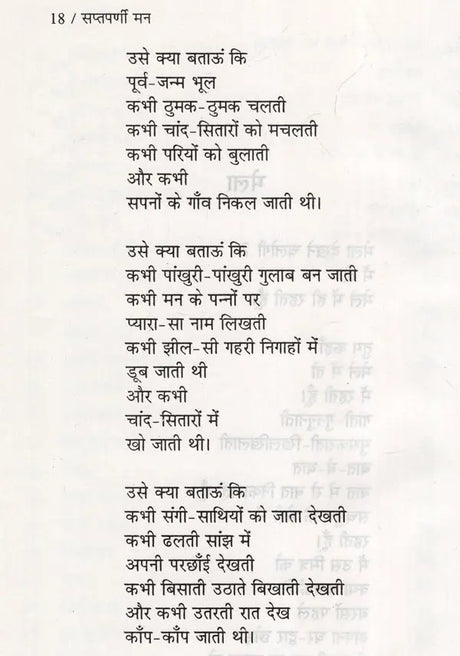 18 / सप्तपर्णी मन
उसे क्या बताऊं कि
पूर्व-जन्म भूल
कभी ठुमक-ठुमक चलती
कभी चांद-सितारों को मचलती
कभी परियों को बुलाती
और कभी
सपनों के गाँव निकल जाती थी।
उसे क्या बताऊं कि
कभी पांखुरी-पांखुरी गुलाब बन जाती
कभी मन के पन्नों पर
प्यारा-सा नाम लिखती
कभी झील-सी गहरी निगाहों में
डूब जाती थी
और कभी
चांद-सितारों में
खो जाती थी।
उसे क्या बताऊं कि
कभी संगी-साथियों को जाता देखती
कभी ढलती सांझ में
अपनी परछाँई देखती
कभी बिसाती उठाते बिखाती देखती
और कभी उतरती रात देख
काँप-काँप जाती थी।